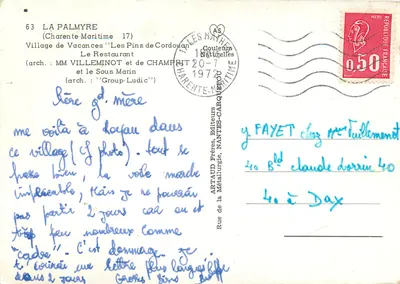 63 LA PALMYRE
(Charente Maritime 17)
Village de Vacances "Les Pins de Cordouan"
Le Restaurant
(arch. : MM VILLEMINOT et de CHAMPRIT
et le Sous Marin
(arch. : "Group-Ludic")
AS
Couleurs
Naturelles
LES MATHES
20-7
1972
CHARENTE-MARITIME
REPUBLIQUE FRANÇAISE
0,50
ARTAUD Frères, Editeurs
Rue de la Métallurgie, NANTES-CARQUEFOU
Chère gd. mère
me voilà à Royan dans
ce village (photo). tout se
passe bien, le
impeccable, Mais je ne pourrai
pas partir 2 jours car on est
trop peu nombreux comme
"cadre". C'est dommage. je
t'écrirai une lettre plus longue
dans 2 jours Grosses Bises
y. FAYET chez Mme Vuillemenot
40 Bld Claude Lorrin 40
40 à Dax